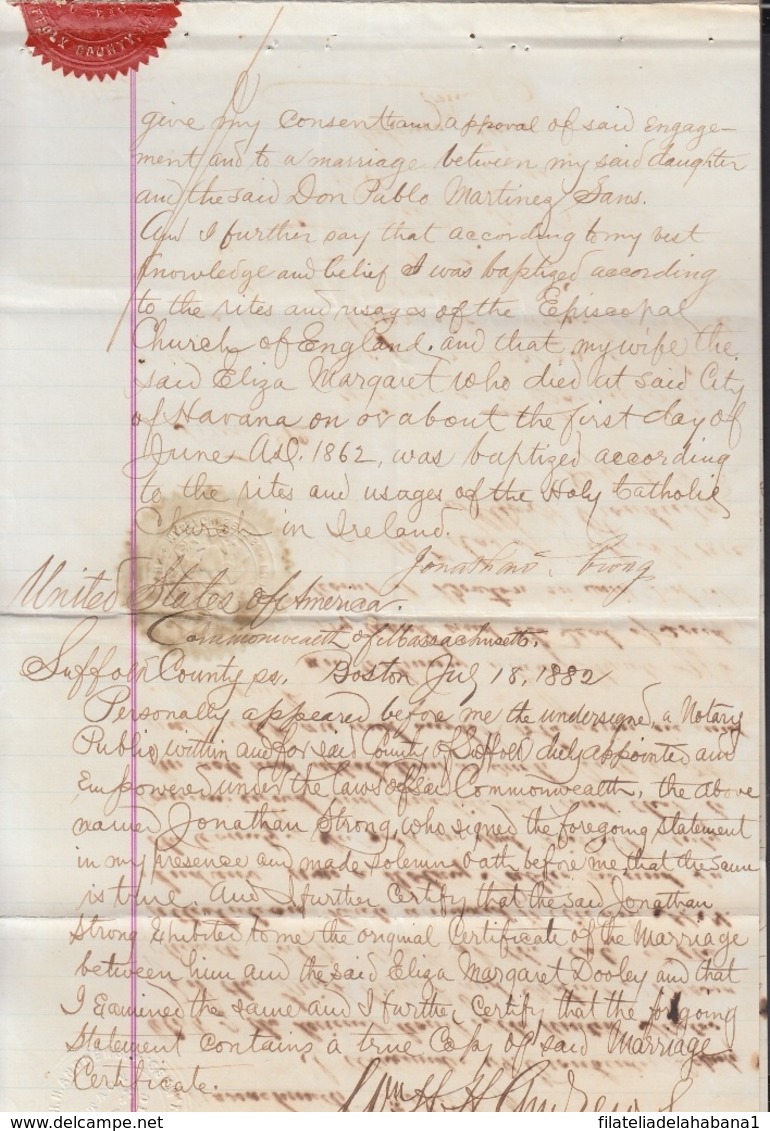 COUNTY
give my consent and approval of said engage-
ment and to a marriage between my said daughter
and the said Don Pablo Martinez Sans.
And I further say that according to my best
knowledge and belief I was baptized according
to the rites and usages of the Episcopal
Church of England. and that my wife the
said Eliza Margaret who died at said City
of Havana on or about the first day of
June A.D. 1862, was baptized according
to the rites and usages of the Holy Catholic
Church in Ireland.
Jonathan Strong
United States of America.
Commonwealth of Massachusetts.
Suffolk County ss. Boston July 18, 1882
Personally appeared before me the undersigned, a Notary
Public, within and for said County of Suffolk duly appointed and
Empowered under the laws of said Commonwealth, the above
named Jonathan Strong, who signed the foregoing statement
in my presence and made solemn oath, before me, that the same
is true. And I further certify that the said Jonathan
Strong Exhibited to me the original Certificate of the Marriage
between him and the said Eliza Margaret Dooley and that
I Examined the same and I further certify that the foregoing
Statement contains a true Copy of said Marriage
Certificate.
Wm H. H. Andrews
filateliadelahabana1